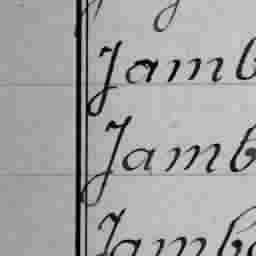 Jamb
Jamb
Jamb